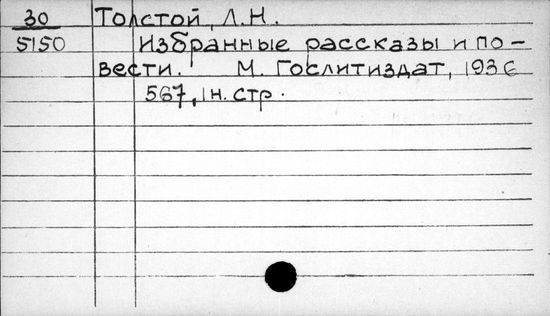 30 Толстой, Л.Н.
5150 Избранные рассказы и по-
вести. М. Гослитиздат, 1936
567, 1н. стр.